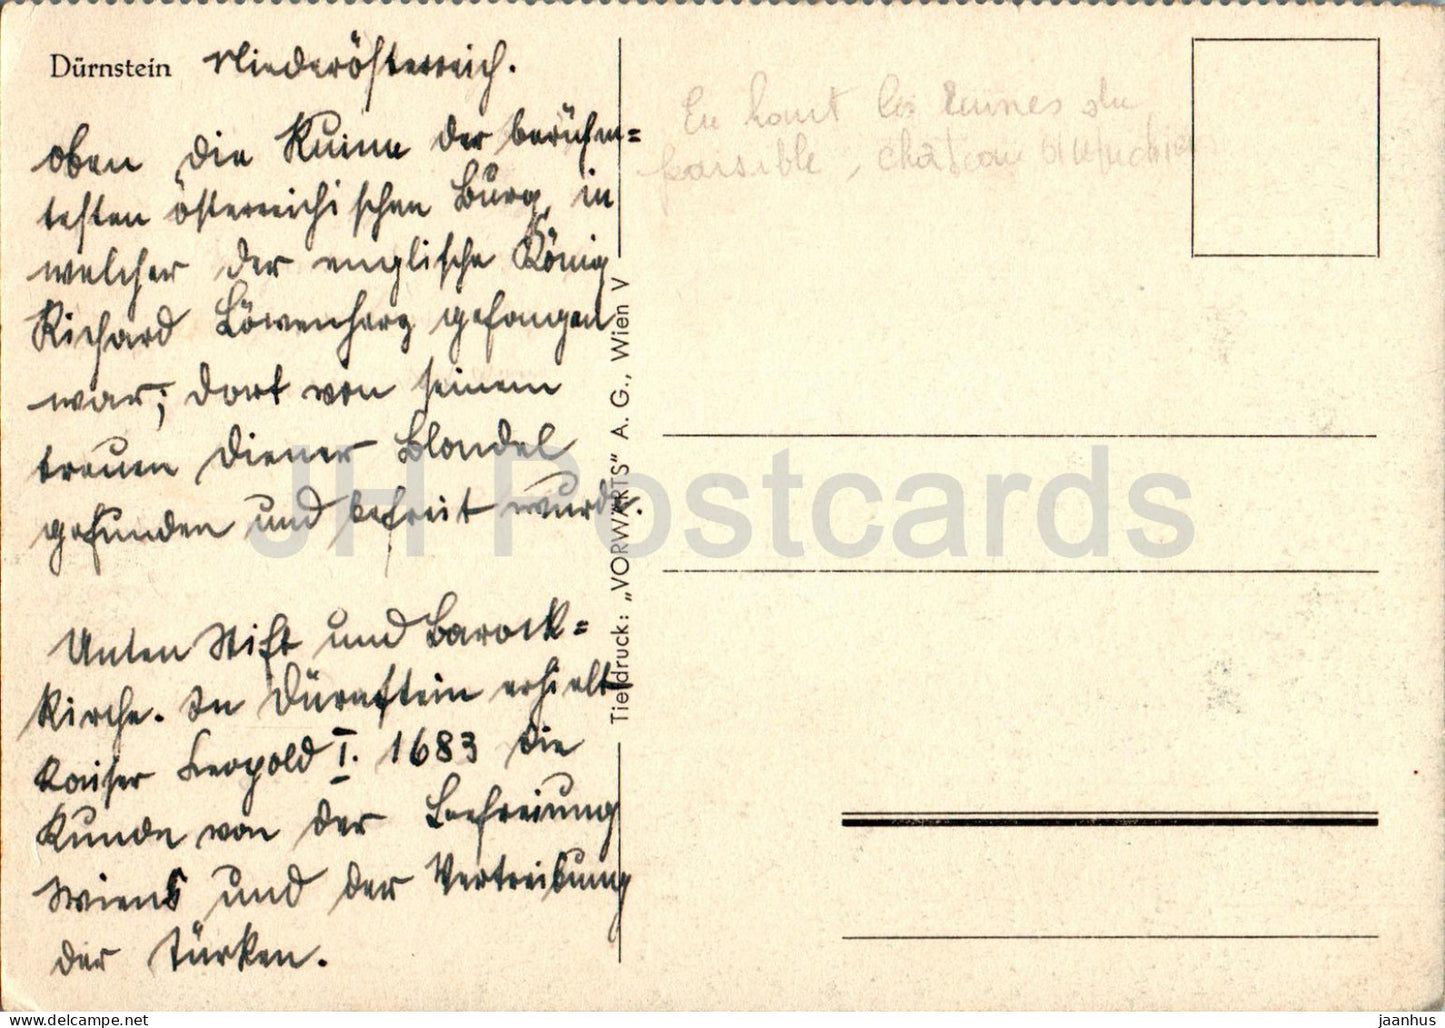 Dürnstein Niederösterreich.
oben die Ruine der berühm=
testen österreichischen Burg, in
welcher der englische König
Richard Löwenherz gefangen
war; dort von seinem
treuen Diener Blondel
gefunden und befreit wurde.
Unten Stift und Barock=
Kirche. In Dürnstein erhielt
Kaiser Leopold I. 1683 die
Kunde von der Befreiung
Wiens und der Vertreibung
der Türken.
Tiefdruck: „VORWÄRTS" A. G., Wien V
En haut les ruines du
paisible, château
JH Postcards
jaanhus
delcampe.net